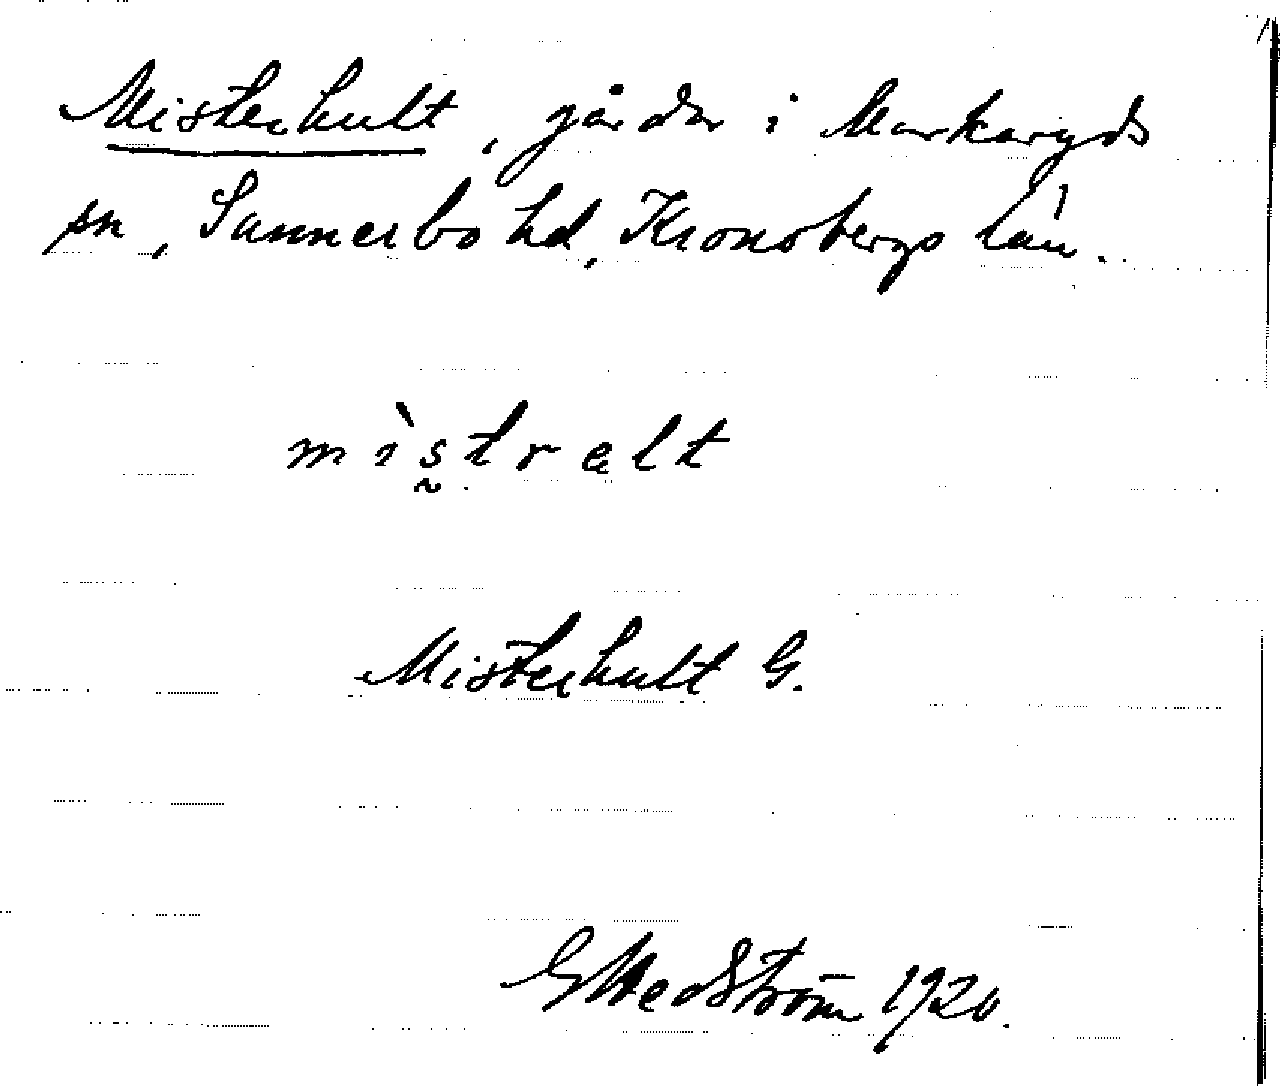 Misterhult, gårdar i Markaryds
sn, Sunnerbo hd, Kronobergs län.
mìs̰trɐlt
Misterhult G.
G Hedström 1920.